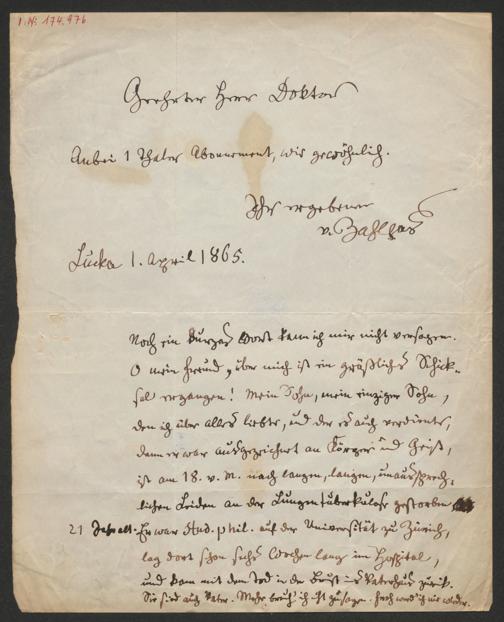 I. N. 174.976
Geehrter Herr Doktor
Anbei 1 Thaler Abonnement, wie gewöhnlich.
Ihr ergebener
v. Zahlhas
Lucka 1. April 1865.
Noch ein kurzes Wort kann ich mir nicht versagen.
O mein Freund, über mich ist ein gräßliches Schick-
sal ergangen! Mein Sohn, mein einziger Sohn,
den ich über alles liebte, und der es auch verdiente,
denn er war ausgezeichnet an Körper und Geist,
ist am 18. v. M. nach langen, langen, unaussprech-
lichen Leiden an der Lungentuberkulose gestorben
21 Jahr alt. Er war stud. phil. auf der Universität zu Zürich,
lag dort schon sechs Wochen lang im Hospital,
und kam mit dem Tod in der Brust ins Vaterhaus zurück.
Sie sind auch Vater. Mehr brauch ich nicht zu sagen. Froh werd ich nie wieder.